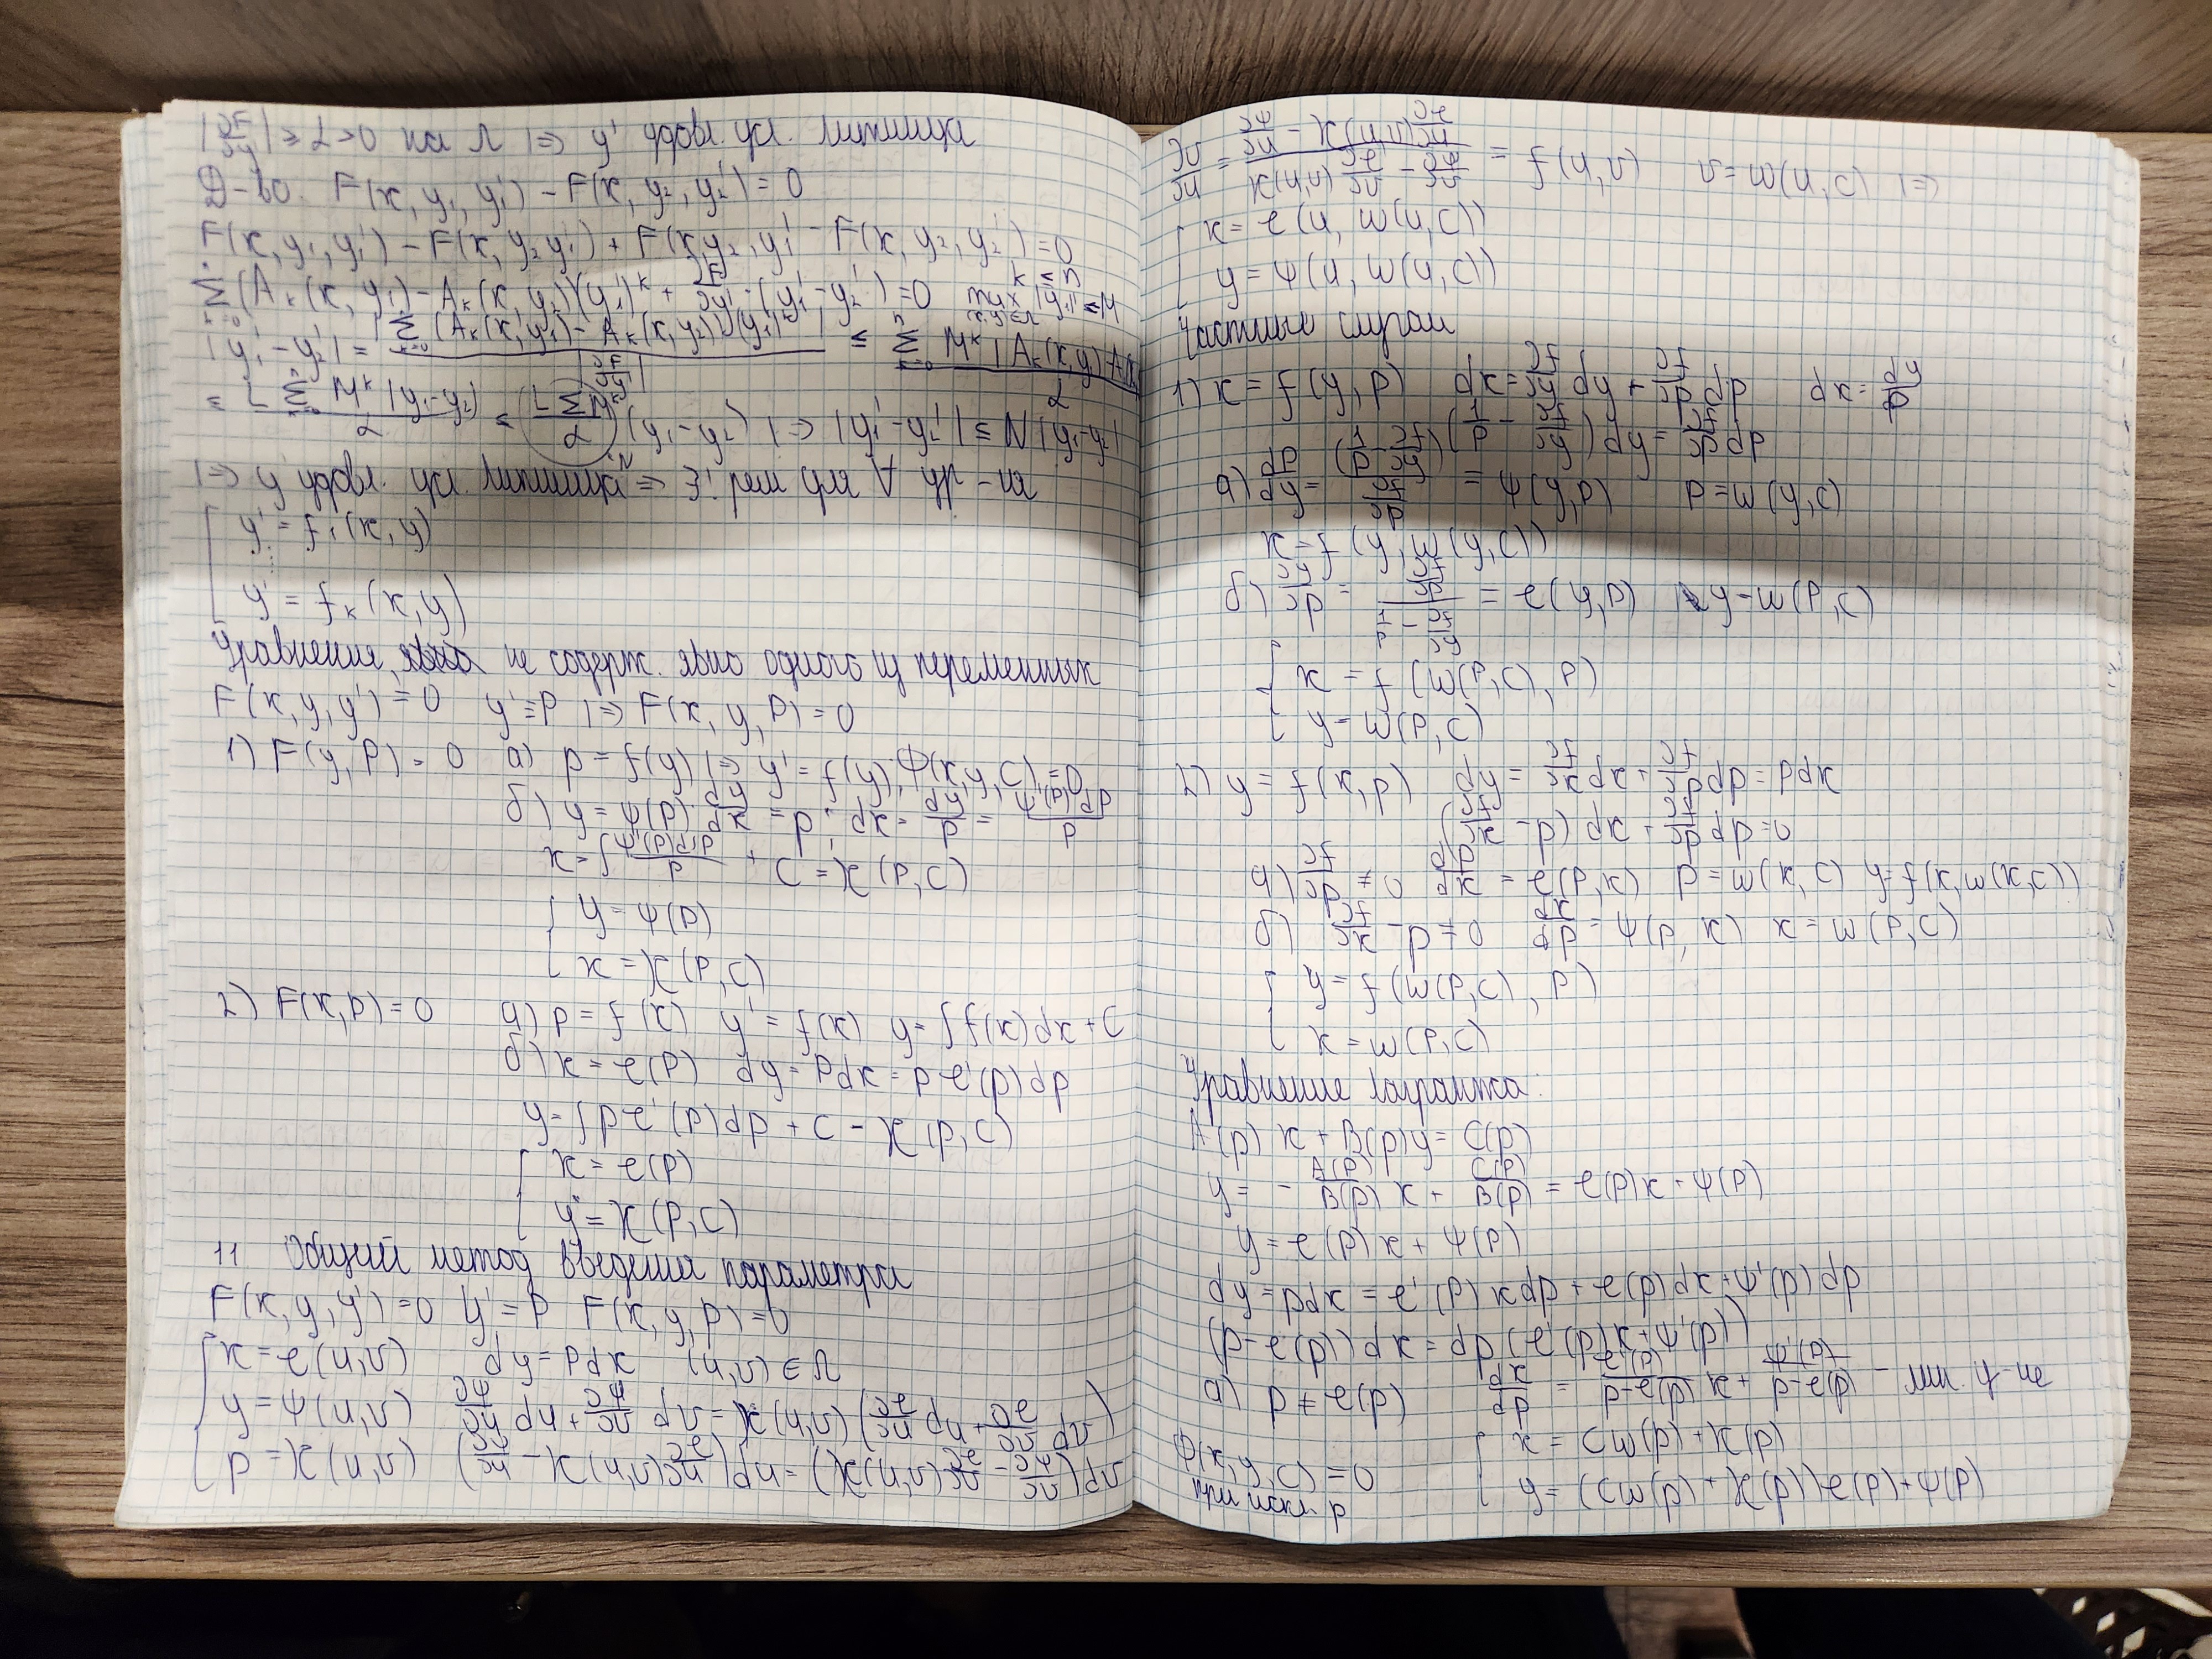 |∂F/∂y'| ≥ α > 0 на Λ |⇒ y' удовл. усл. Липшица
Д-во. F(x, y₁, y₁') − F(x, y₂, y₂') = 0
F(x, y₁, y₁') − F(x, y₂ y₁') + F(x, y₂, y₁' − F(x, y₂, y₂') = 0
∑(Aₖ(x, y₁) − Aₖ(x, y₂))(y₁')ᵏ + ∂F/∂y' · (y₁' − y₂') = 0 k ≤ n max |y₁'| ≤ M
|y₁' − y₂'| = |∑(Aₖ(x, y₁) − Aₖ(x, y₂))(y₁')ᵏ| / |∂F/∂y'| ≤ ∑ Mᵏ |Aₖ(x, y₁)
≤ L ∑ Mᵏ |y₁ − y₂| / α ≤ (L ∑ Mᵏ / α) (y₁ − y₂) |⇒ |y₁' − y₂'| ≤ N |y₁ − y₂|
|⇒ y удовл. усл. Липшица ⇒ ∃! реш для ∀ ур-ия
{ y' = f₁(x, y)
....
y' = fₖ(x, y)
Уравнения, не содерж. явно одного из переменных
F(x, y, y') = 0 y' = p |⇒ F(x, y, p) = 0
1) F(y, p) = 0 а) p = f(y) |⇒ y' = f(y), Φ(x, y, C) = 0
б) y = ψ(p) dy/dx = p ; dx = dy/p = ψ'(p)dp/p
x = ∫ ψ'(p)dp/p + C = χ(p, C)
{ y = ψ(p)
x = χ(p, C)
2) F(x, p) = 0 а) p = f(x) y' = f(x) y = ∫f(x)dx + C
б) x = φ(p) dy = pdx = p φ'(p)dp
y = ∫p φ'(p)dp + C = χ(p, C)
{ x = φ(p)
y = χ(p, C)
11 Общий метод введения параметра
F(x, y, y') = 0 y' = p F(x, y, p) = 0
{ x = φ(u, v) dy = pdx (u, v) ∈ Λ
y = ψ(u, v) ∂ψ/∂u du + ∂ψ/∂v dv = χ(u, v)(∂φ/∂u du + ∂φ/∂v dv)
p = χ(u, v) (∂ψ/∂u − χ(u, v)∂φ/∂u)du = (χ(u, v)∂φ/∂v − ∂ψ/∂v)dv
∂v/∂u = (∂ψ/∂u − χ(u, v)∂φ/∂u) / (χ(u, v)∂φ/∂v − ∂ψ/∂v) = f(u, v) v = w(u, C) |⇒
{ x = φ(u, w(u, C))
y = ψ(u, w(u, C))
Частные случаи
1) x = f(y, p) dx = ∂f/∂y dy + ∂f/∂p dp dx = dy/p
(1/p − ∂f/∂y) dy = ∂f/∂p dp
а) dp/dy = (1/p − ∂f/∂y) / ∂f/∂p = ψ(y, p) p = w(y, C)
x = f(y, w(y, C))
б) ∂y/∂p = ∂f/∂p / (1/p − ∂f/∂y) = φ(y, p) y = w(p, C)
{ x = f(w(p, C), p)
y = w(p, C)
2) y = f(x, p) dy = ∂f/∂x dx + ∂f/∂p dp = pdx
(∂f/∂x − p) dx + ∂f/∂p dp = 0
а) ∂f/∂p ≠ 0 dp/dx = φ(p, x) p = w(x, C) y = f(x, w(x, C))
б) ∂f/∂x − p ≠ 0 dx/dp = ψ(p, x) x = w(p, C)
{ y = f(w(p, C), p)
x = w(p, C)
Уравнение Лагранжа:
A(p) x + B(p)y = C(p)
y = − A(p)/B(p) x + C(p)/B(p) = φ(p)x + ψ(p)
y = φ(p)x + ψ(p)
dy = pdx = φ'(p)xdp + φ(p)dx + ψ'(p)dp
(p − φ(p))dx = dp(φ'(p)x + ψ'(p))
а) p ≠ φ(p) dx/dp = φ'(p)/(p − φ(p)) x + ψ'(p)/(p − φ(p)) − лин. у-ие
Φ(x, y, C) = 0 { x = Cw(p) + χ(p)
при искл. p y = (Cw(p) + χ(p))φ(p) + ψ(p)